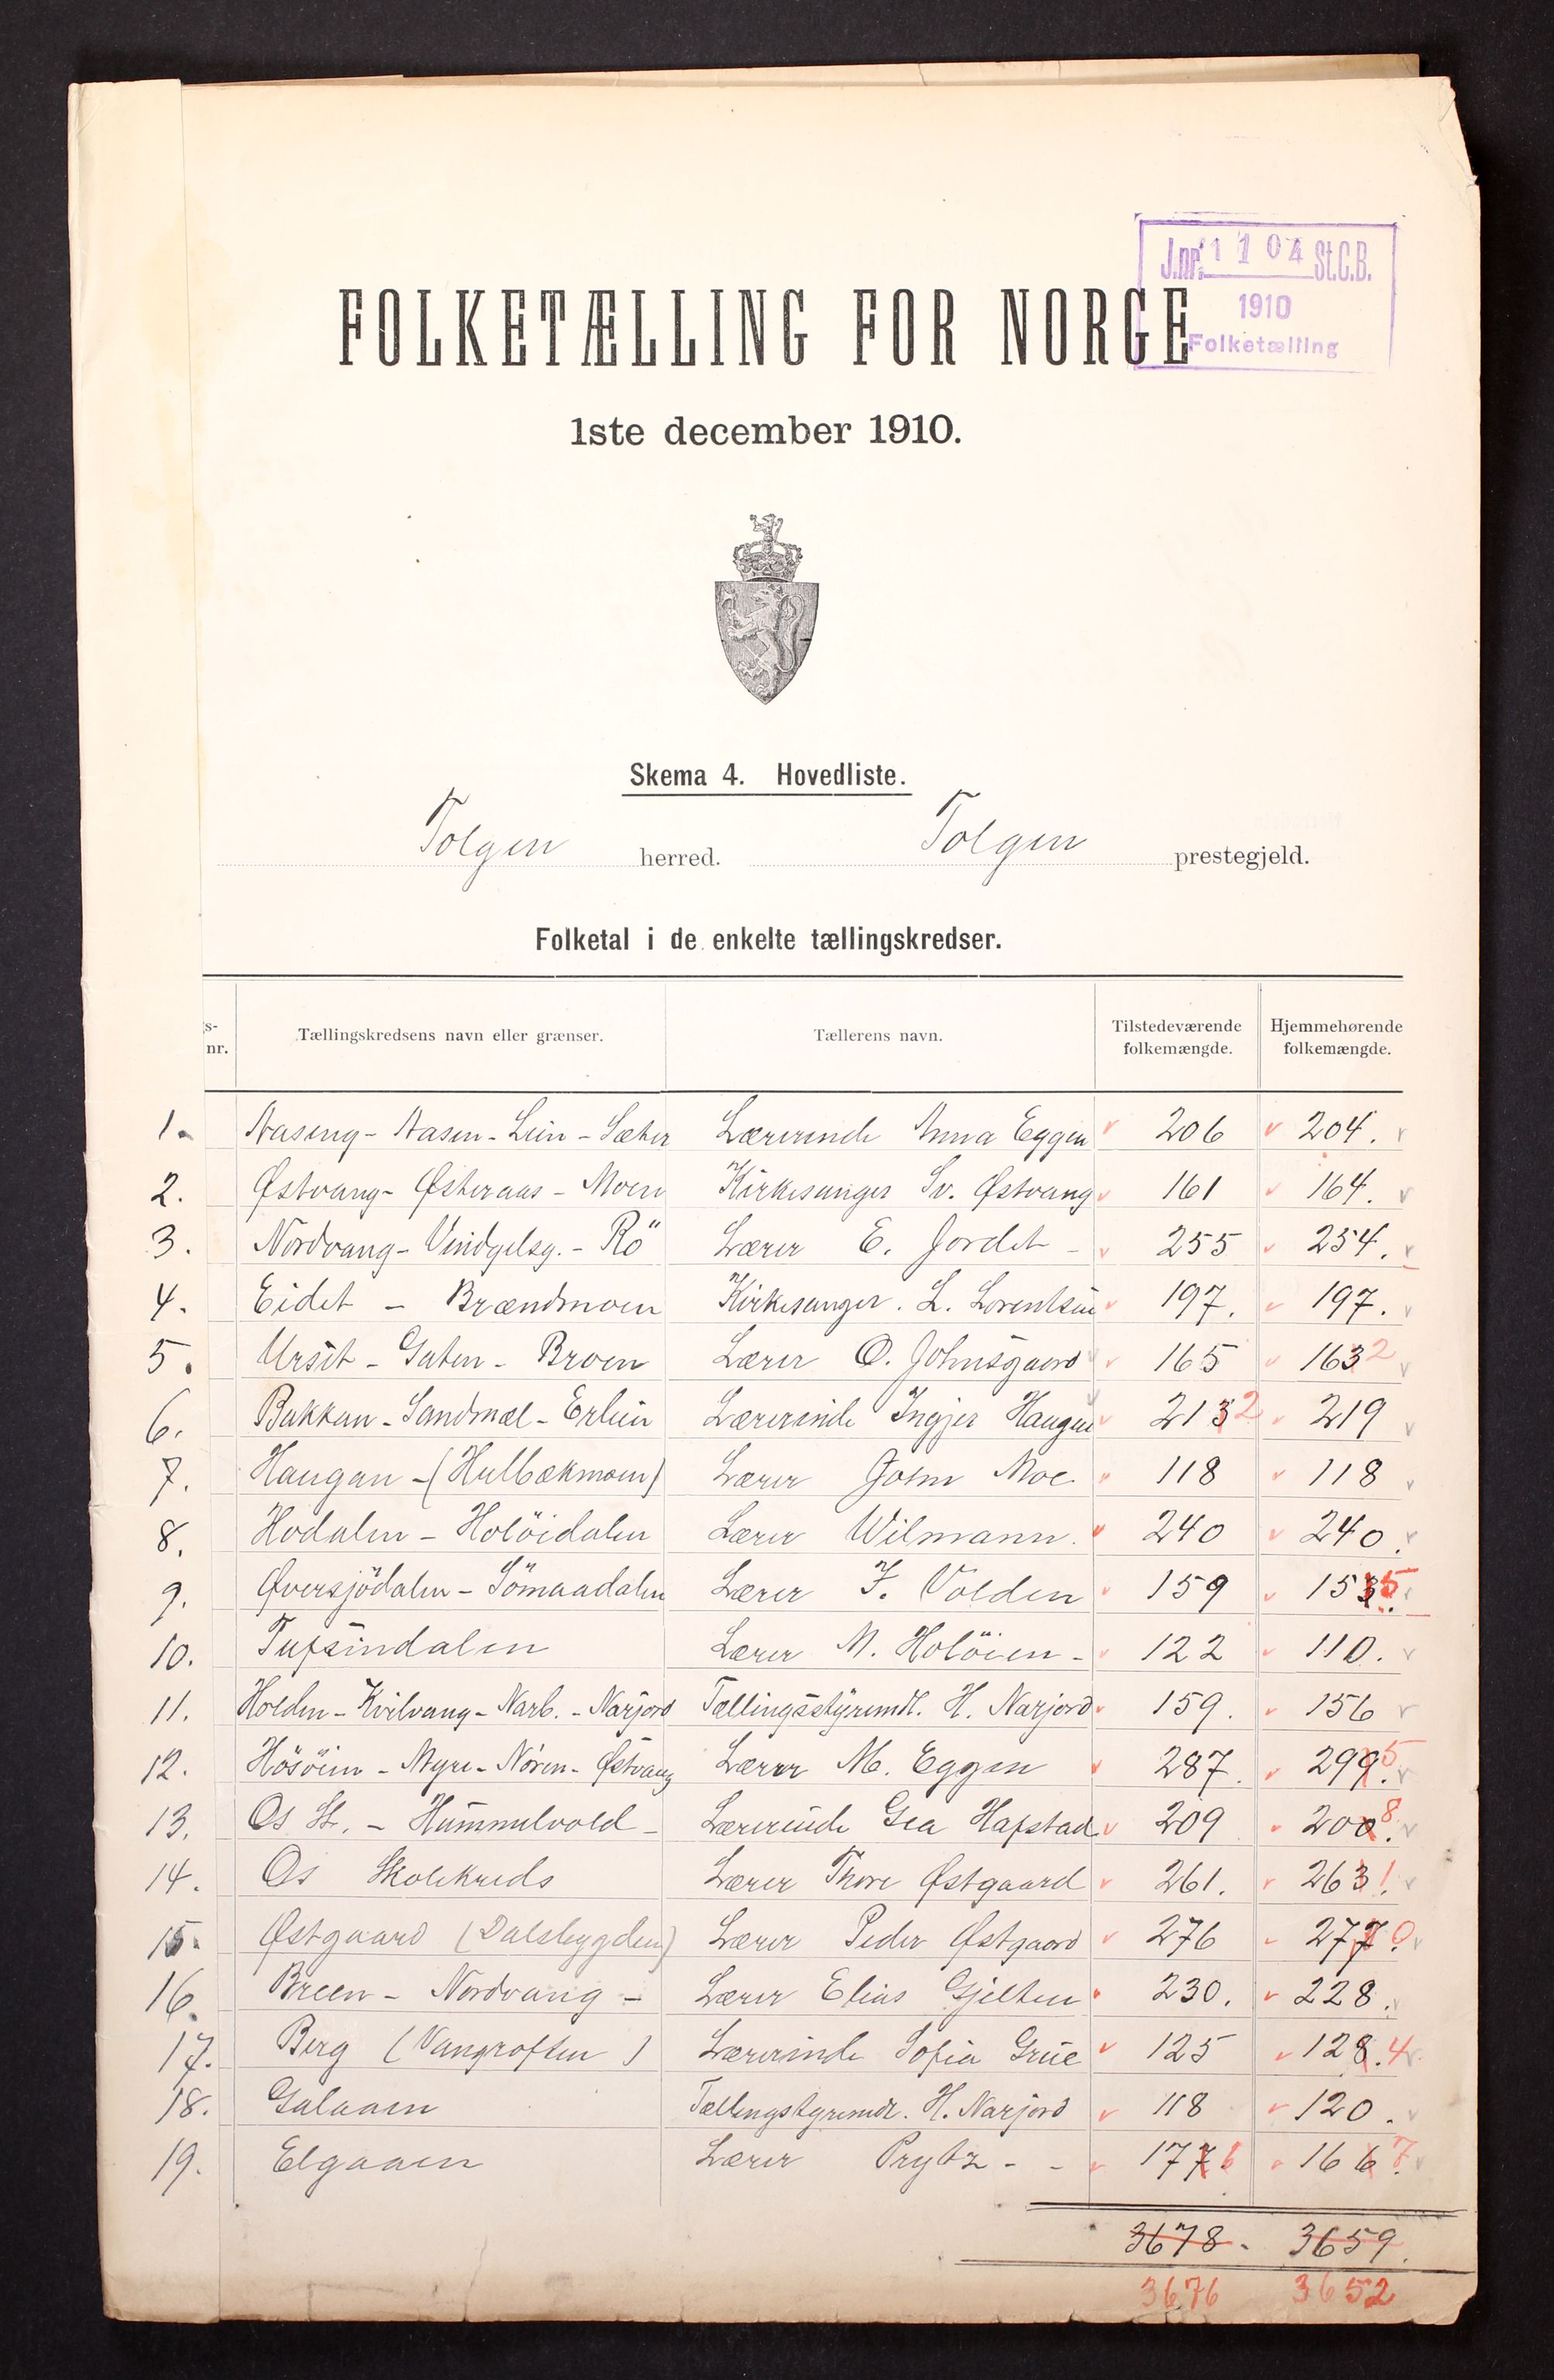 J.nr. 1104 St.C.B.
1910
Folketælling
FOLKETÆLLING FOR NORGE
1ste december 1910.
Skema 4. Hovedliste.
Tolgen herred. Tolgen prestegjeld.
Folketal i de enkelte tællingskredser.
s-nr. Tællingskredsens navn eller grænser. Tællerens navn. Tilstedeværende folkemængde. Hjemmehørende folkemængde.
1. Aaseng - Aasen - Lien - Sæter Lærerinde Anna Eggen 206 204.
2. Østvang - Østeraas - Moen Kirkesanger Sv. Østvang 161 164.
3. Nordvang - Vindgelsg. - Rö Lærer E. Jordet - 255 254.
4. Eidet - Brændmoen Kirkesanger. L. Lorentsen 197. 197.
5. Urset - Gaten - Broen Lærer O. Johnsgaard 165 163 2
6. Bakkan - Sandmæl - Erlien Lærerinde Ingjer Haugen 213 2 219
7. Haugan - (Hulbækmoen) Lærer John Moe 118 118
8. Hodalen - Holöidalen Lærer Wilmann. 240 240.
9. Øversjödalen - Sömaadalen Lærer J. Volden 159 153 5.
10. Tufsindalen Lærer M. Holöien - 122 110.
11. Holden - Kvilvang - Narb. - Narjord Tællingsstyremdl. H. Narjord 159. 156
12. Hösöien - Myre - Nören - Østvang Lærer M. Eggen 287. 299 5.
13. Os St. - Hummelvold - Lærerinde Gea Hafstad 209 200 8.
14. Os Skolekreds Lærer Thore Østgaard 261. 263 1.
15. Østgaard (Dalsbygden) Lærer Peder Østgaard 276 277 0.
16. Breen - Nordvang - Lærer Elias Gjelten 230. 228.
17. Berg (Vangrøften) Lærerinde Sofia Grue 125 128. 4
18. Galaaen Tællingstyremdl. H. Narjord 118 120.
19. Elgaaen Lærer Prytz - - 177 6 166 7.
3678. 3659.
3676 3652